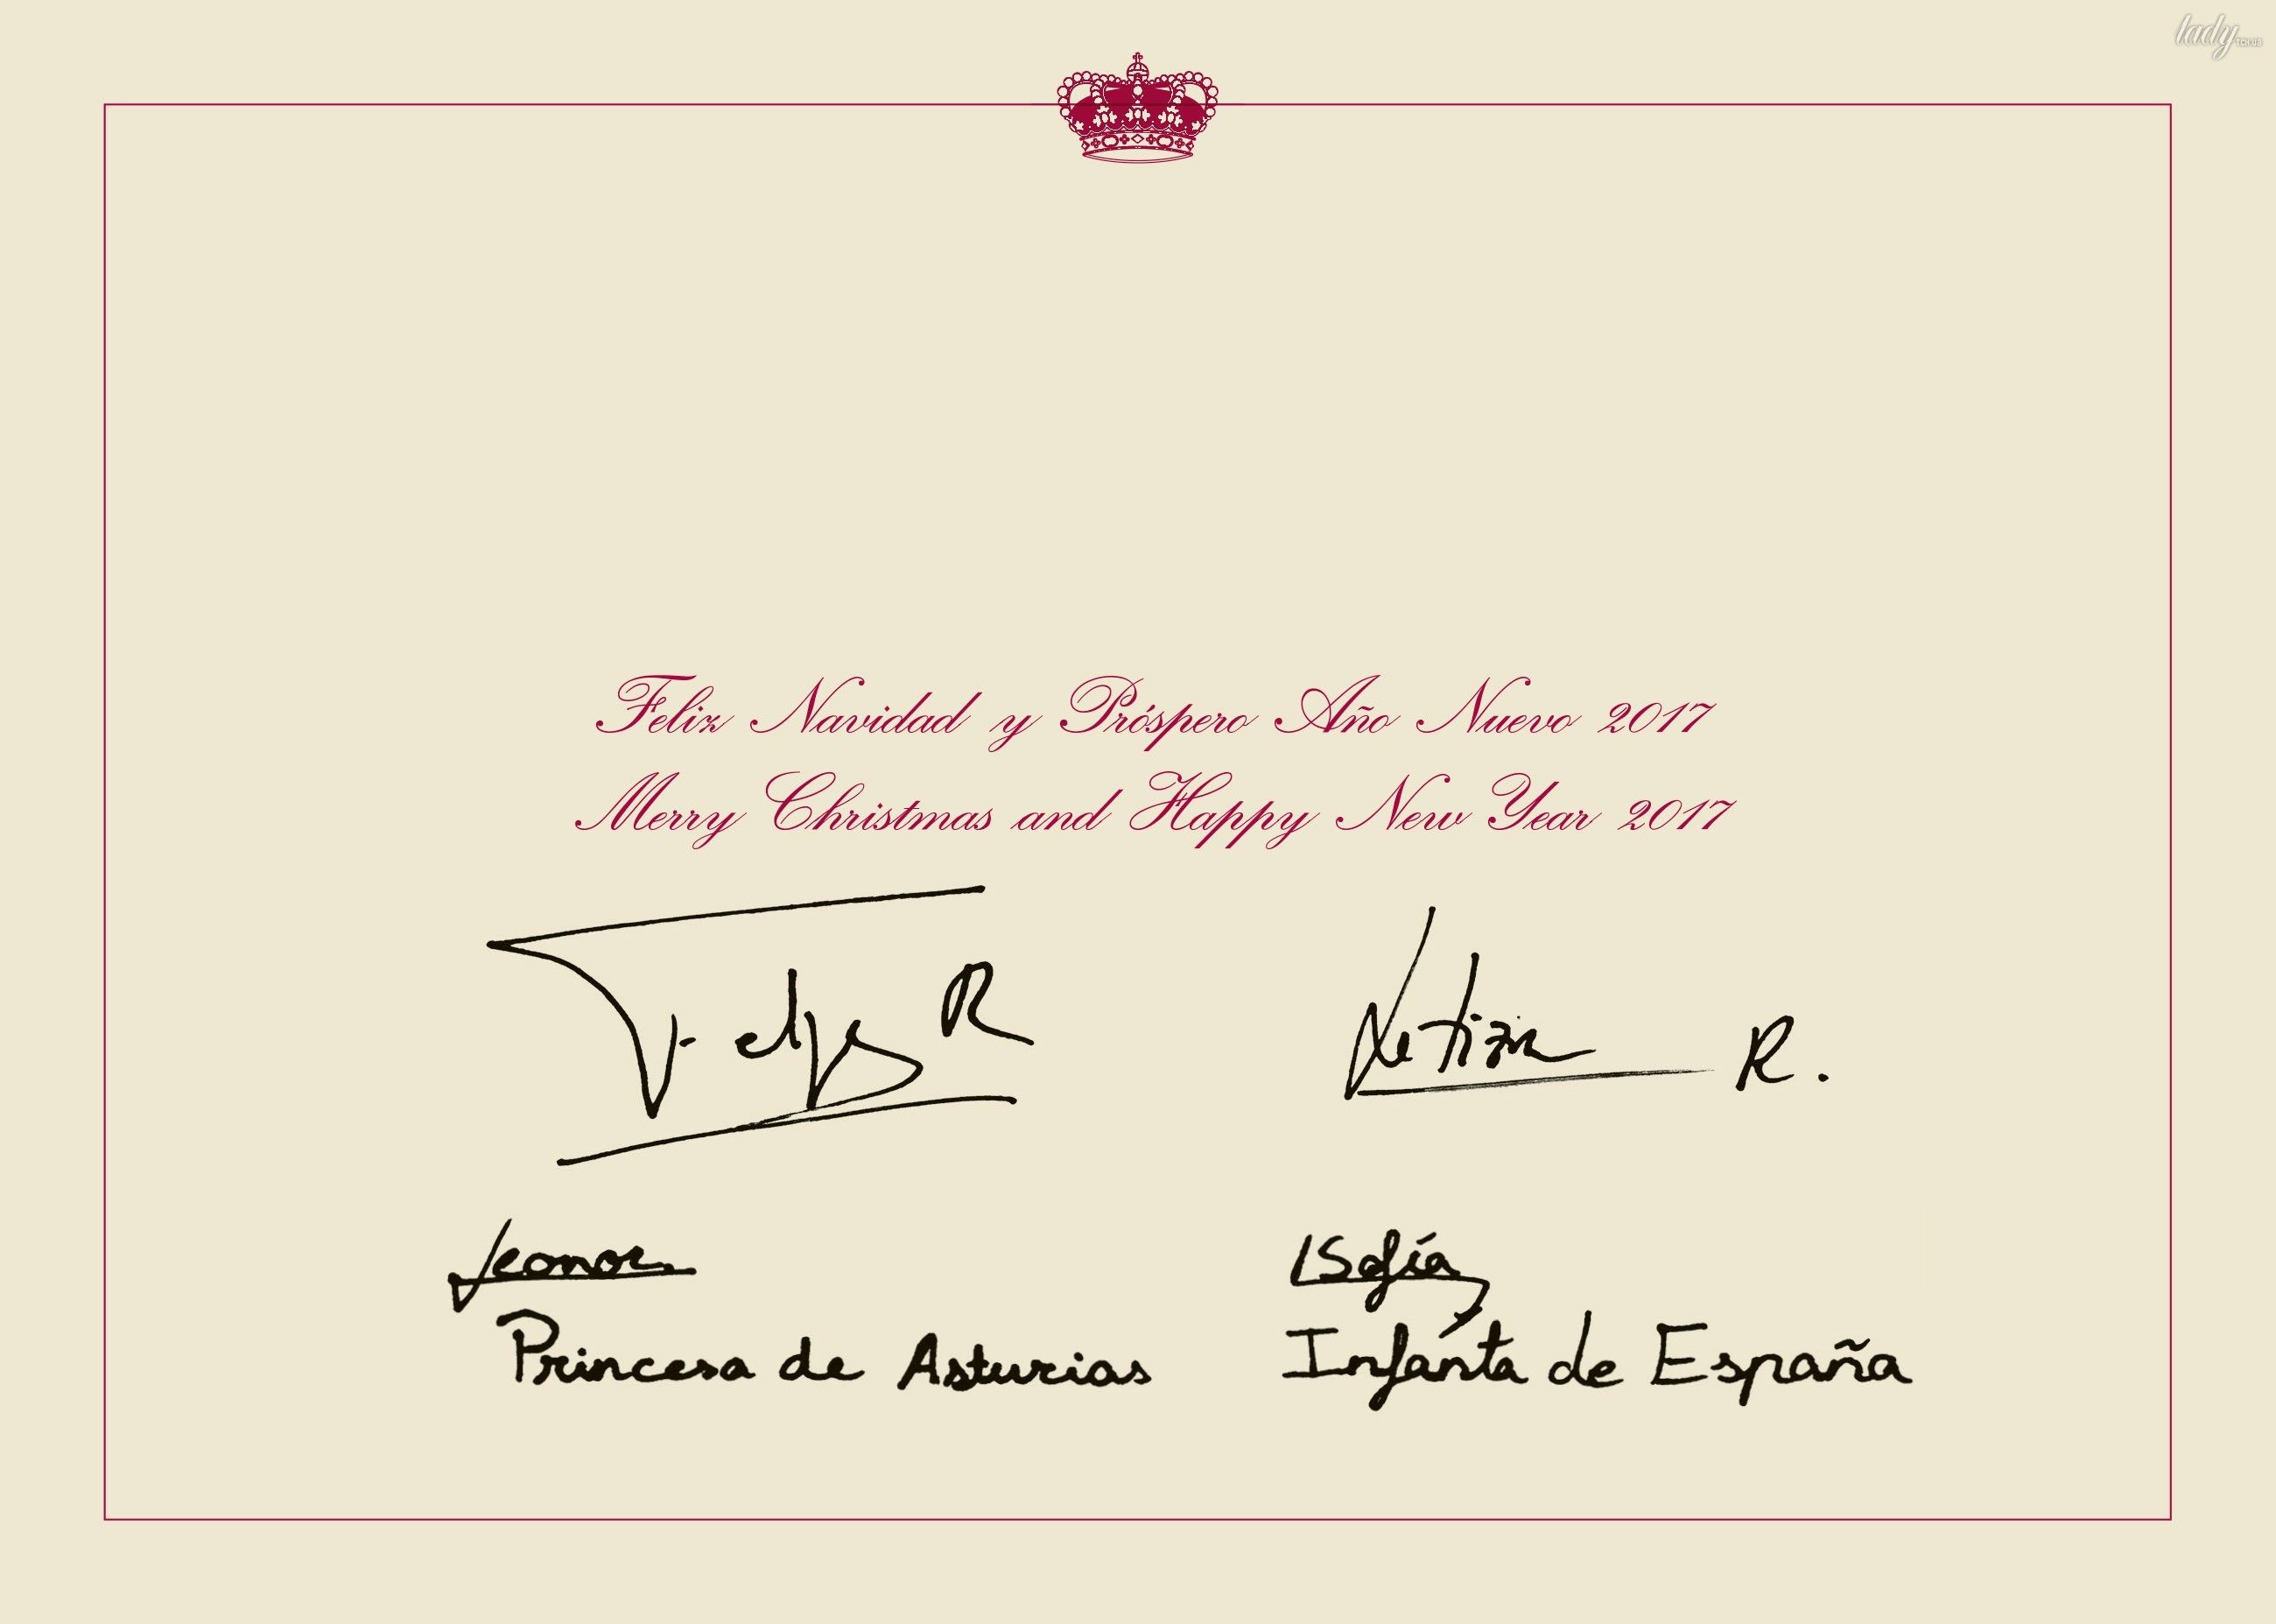 lady
Feliz Navidad y Próspero Año Nuevo 2017
Merry Christmas and Happy New Year 2017
Felipe R
Letizia R.
Leonor
Sofía
Princesa de Asturias
Infanta de España